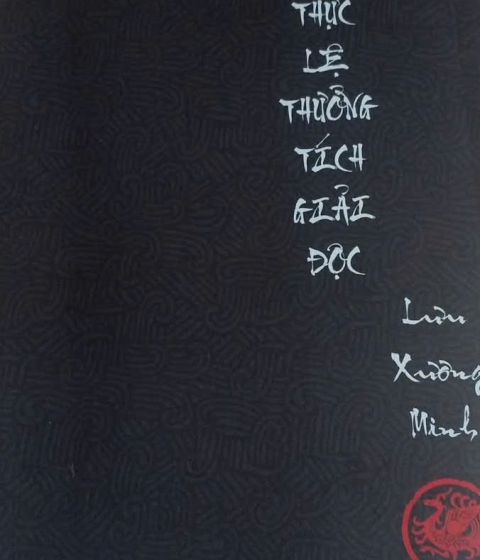 THỰC
LỆ
THƯỞNG
TÍCH
GIẢI
ĐỘC
Lưu
Xương
Minh